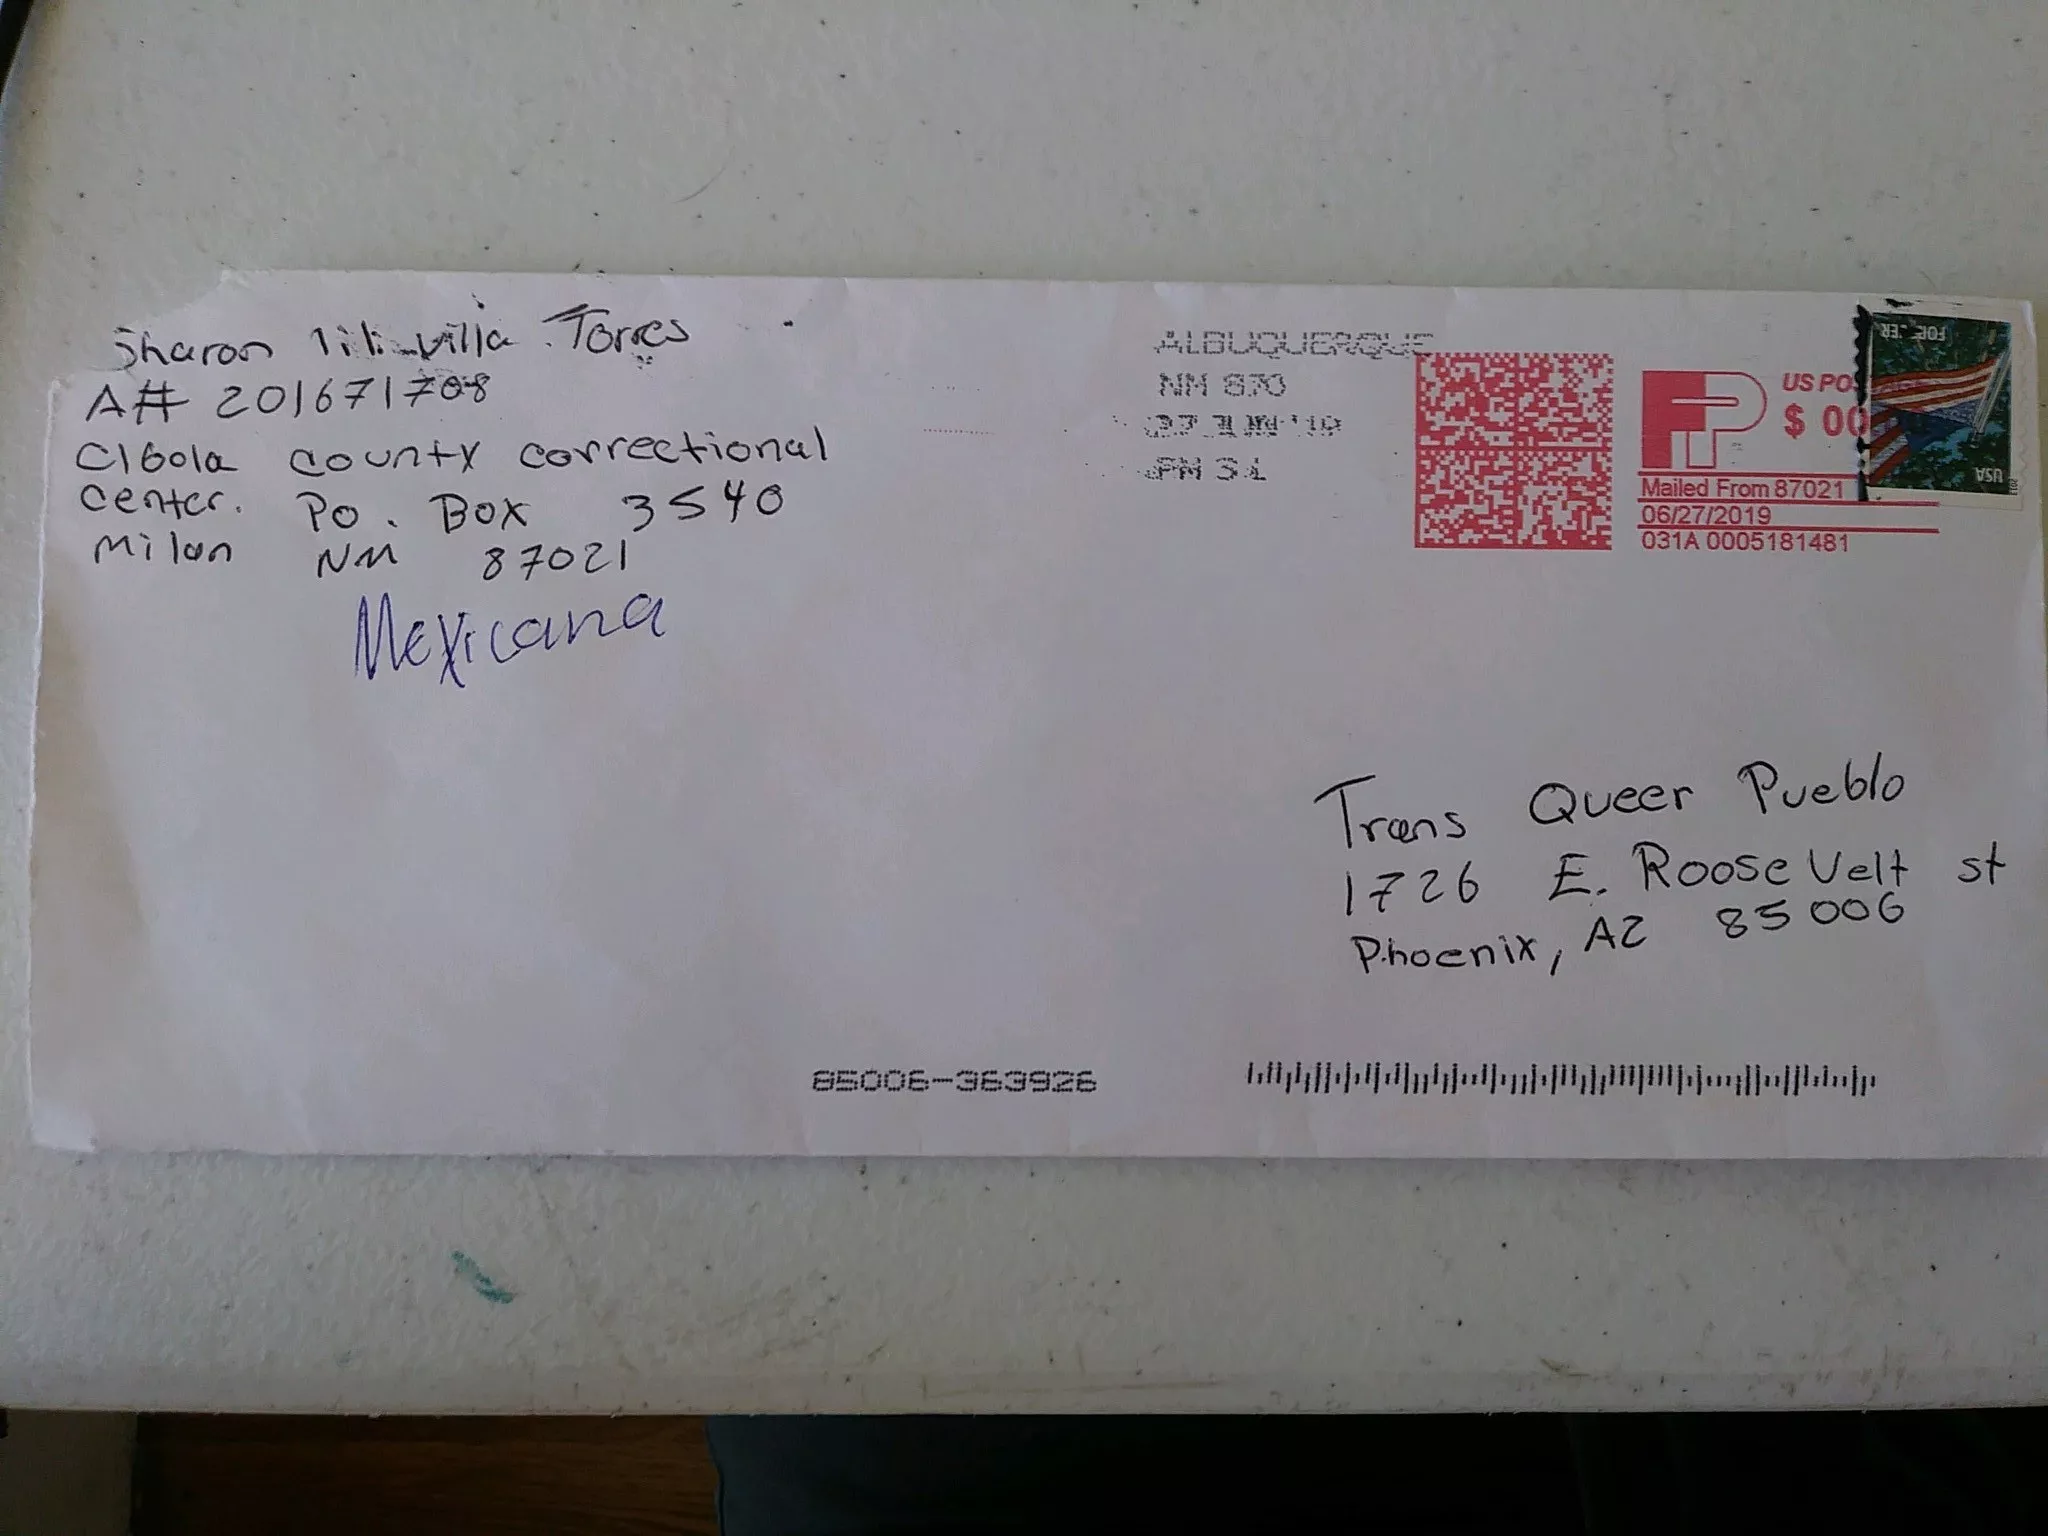 Sharon lili villa Torres
A# 201671708
Cibola county correctional
center. Po. Box 3540
Milan NM 87021
Mexicana
ALBUQUERQUE
NM 870
27 JUN '19
PM 3 L
US PO
$ 00
Mailed From 87021
06/27/2019
031A 0005181481
FOREVER
USA
2013
Trans Queer Pueblo
1726 E. Roosevelt st
Phoenix, AZ 85006
85006-363926